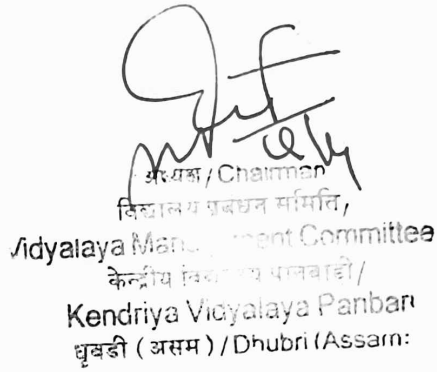 अध्यक्ष / Chairman
विद्यालय प्रबंधन समिति,
Vidyalaya Committee
केन्द्रीय पानबाड़ी /
Kendriya Vidyalaya Panbari
धुबडी ( असम ) / Dhubri (Assam: